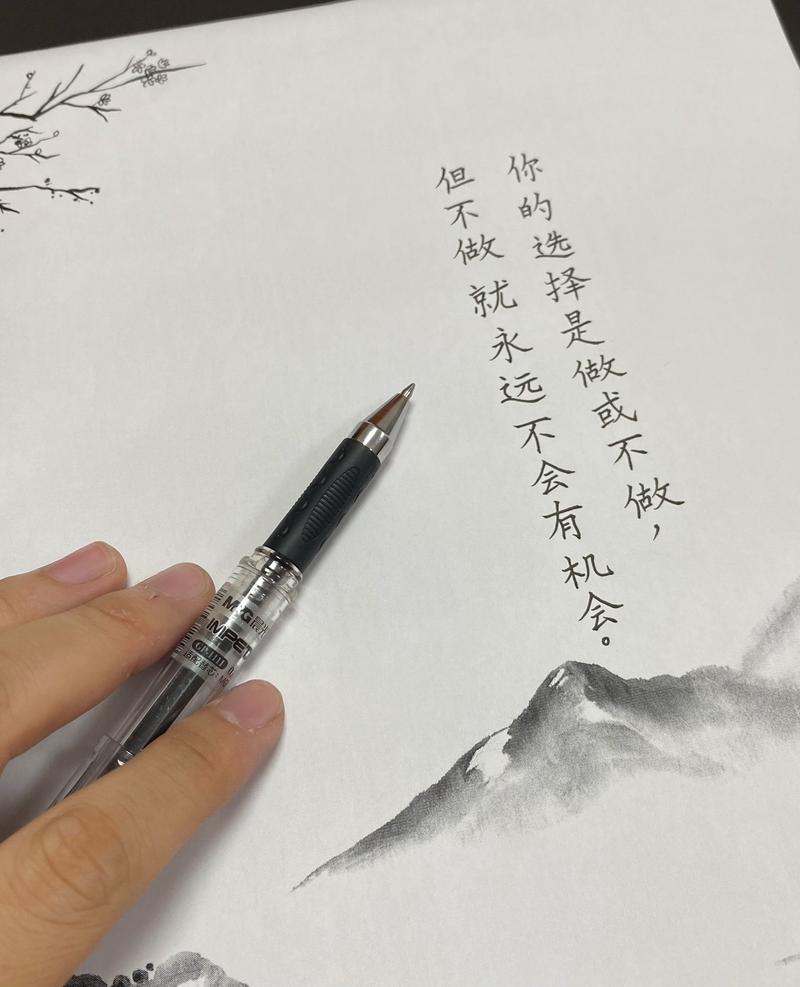 你的选择是做或不做，
但不做就永远不会有机会。
M&G 晨光
GP-1111
适配替芯: